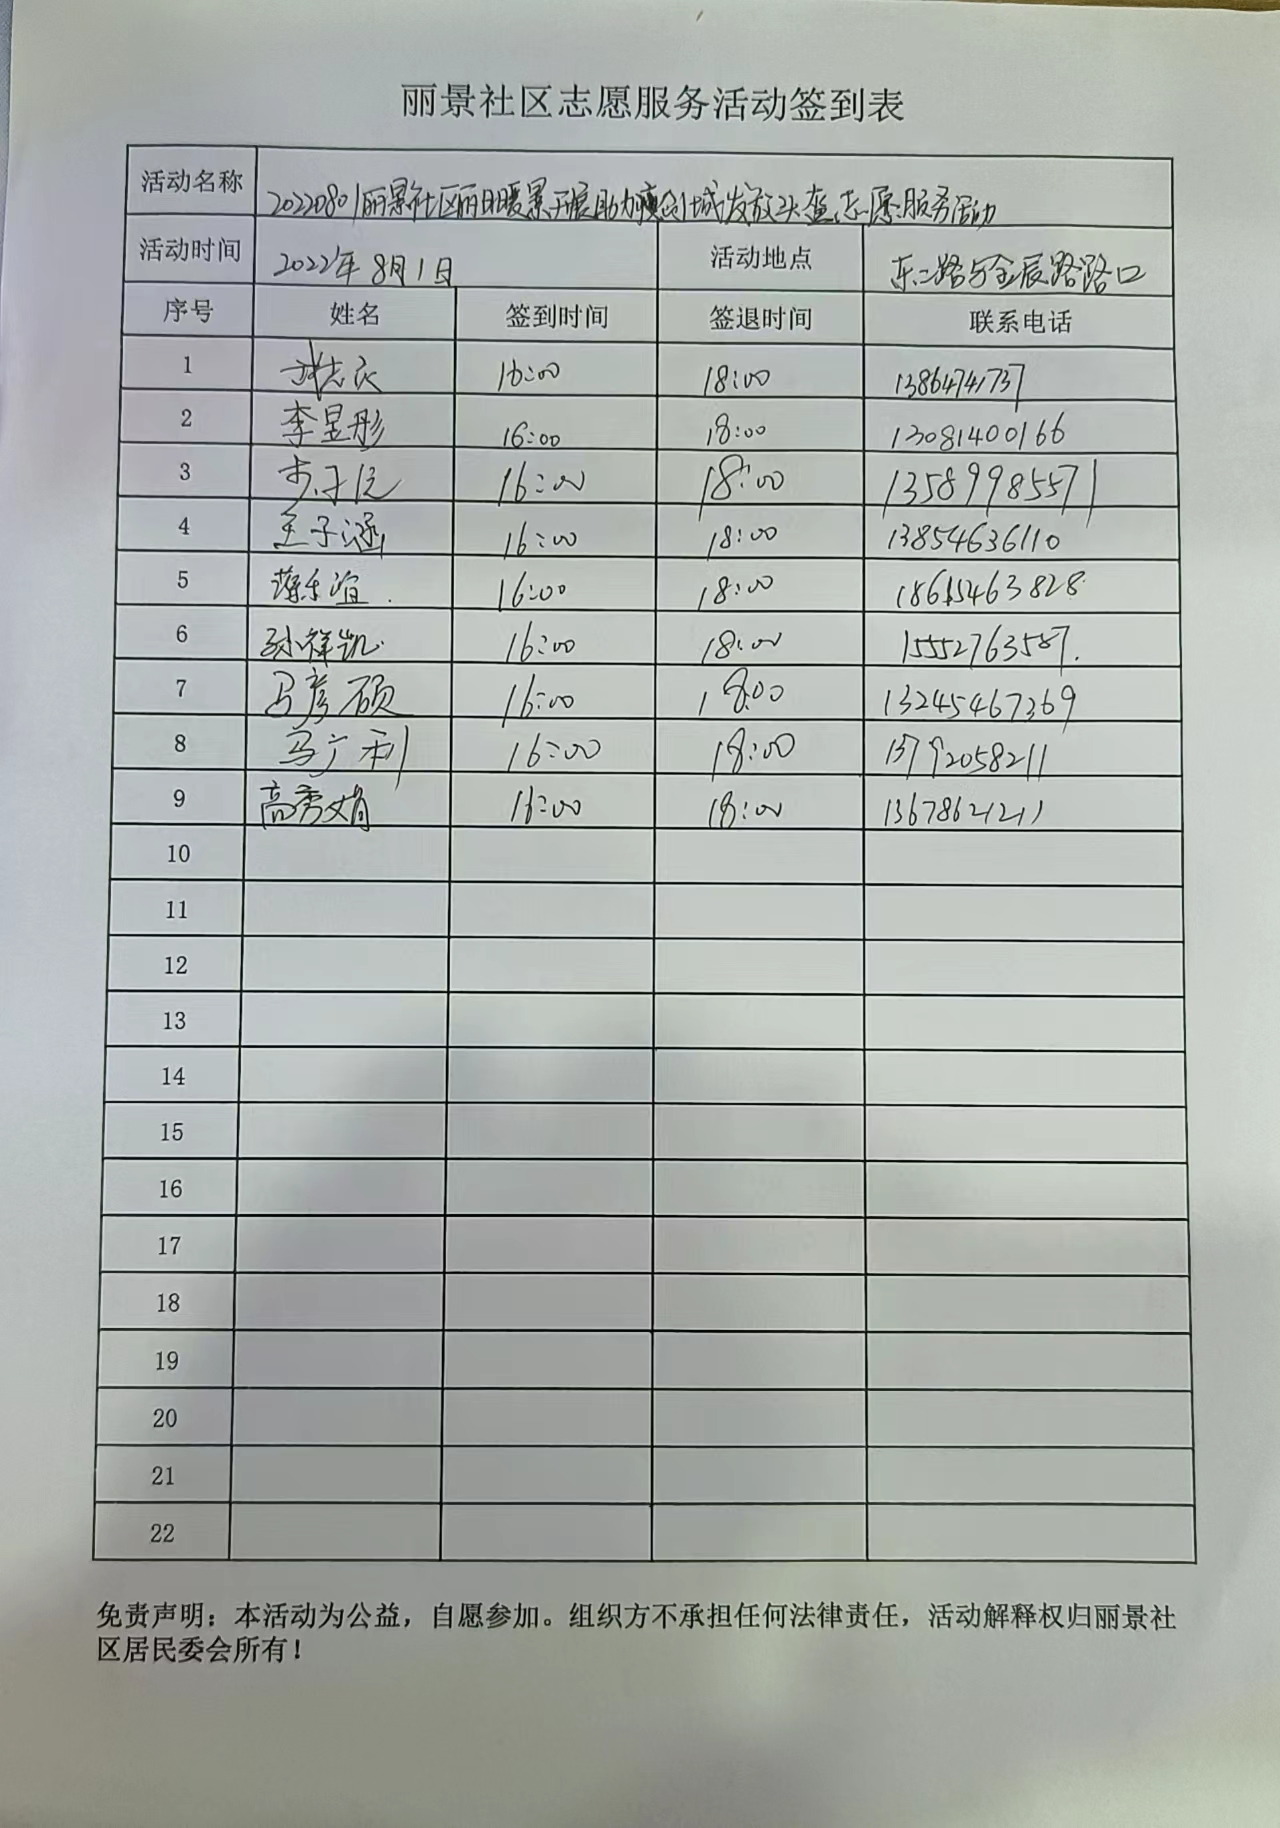 丽景社区志愿服务活动签到表
活动名称 20220801丽景社区丽日暖景开展助力创城发放头盔志愿服务活动
活动时间 2022年8月1日 活动地点 东二路与金辰路路口
序号 姓名 签到时间 签退时间 联系电话
1 16:00 18:00 13864741737
2 李昱彤 16:00 18:00 13081400166
3 16:00 18:00 13589985571
4 王子涵 16:00 18:00 13854636110
5 薄乐谊 16:00 18:00 18615463828
6 孙祥凯 16:00 18:00 15552763587
7 马彦硕 16:00 18:00 13245467369
8 马广利 16:00 18:00 13792058211
9 高秀娟 16:00 18:00 13678621211
10
11
12
13
14
15
16
17
18
19
20
21
22
免责声明：本活动为公益，自愿参加。组织方不承担任何法律责任，活动解释权归丽景社
区居民委会所有！